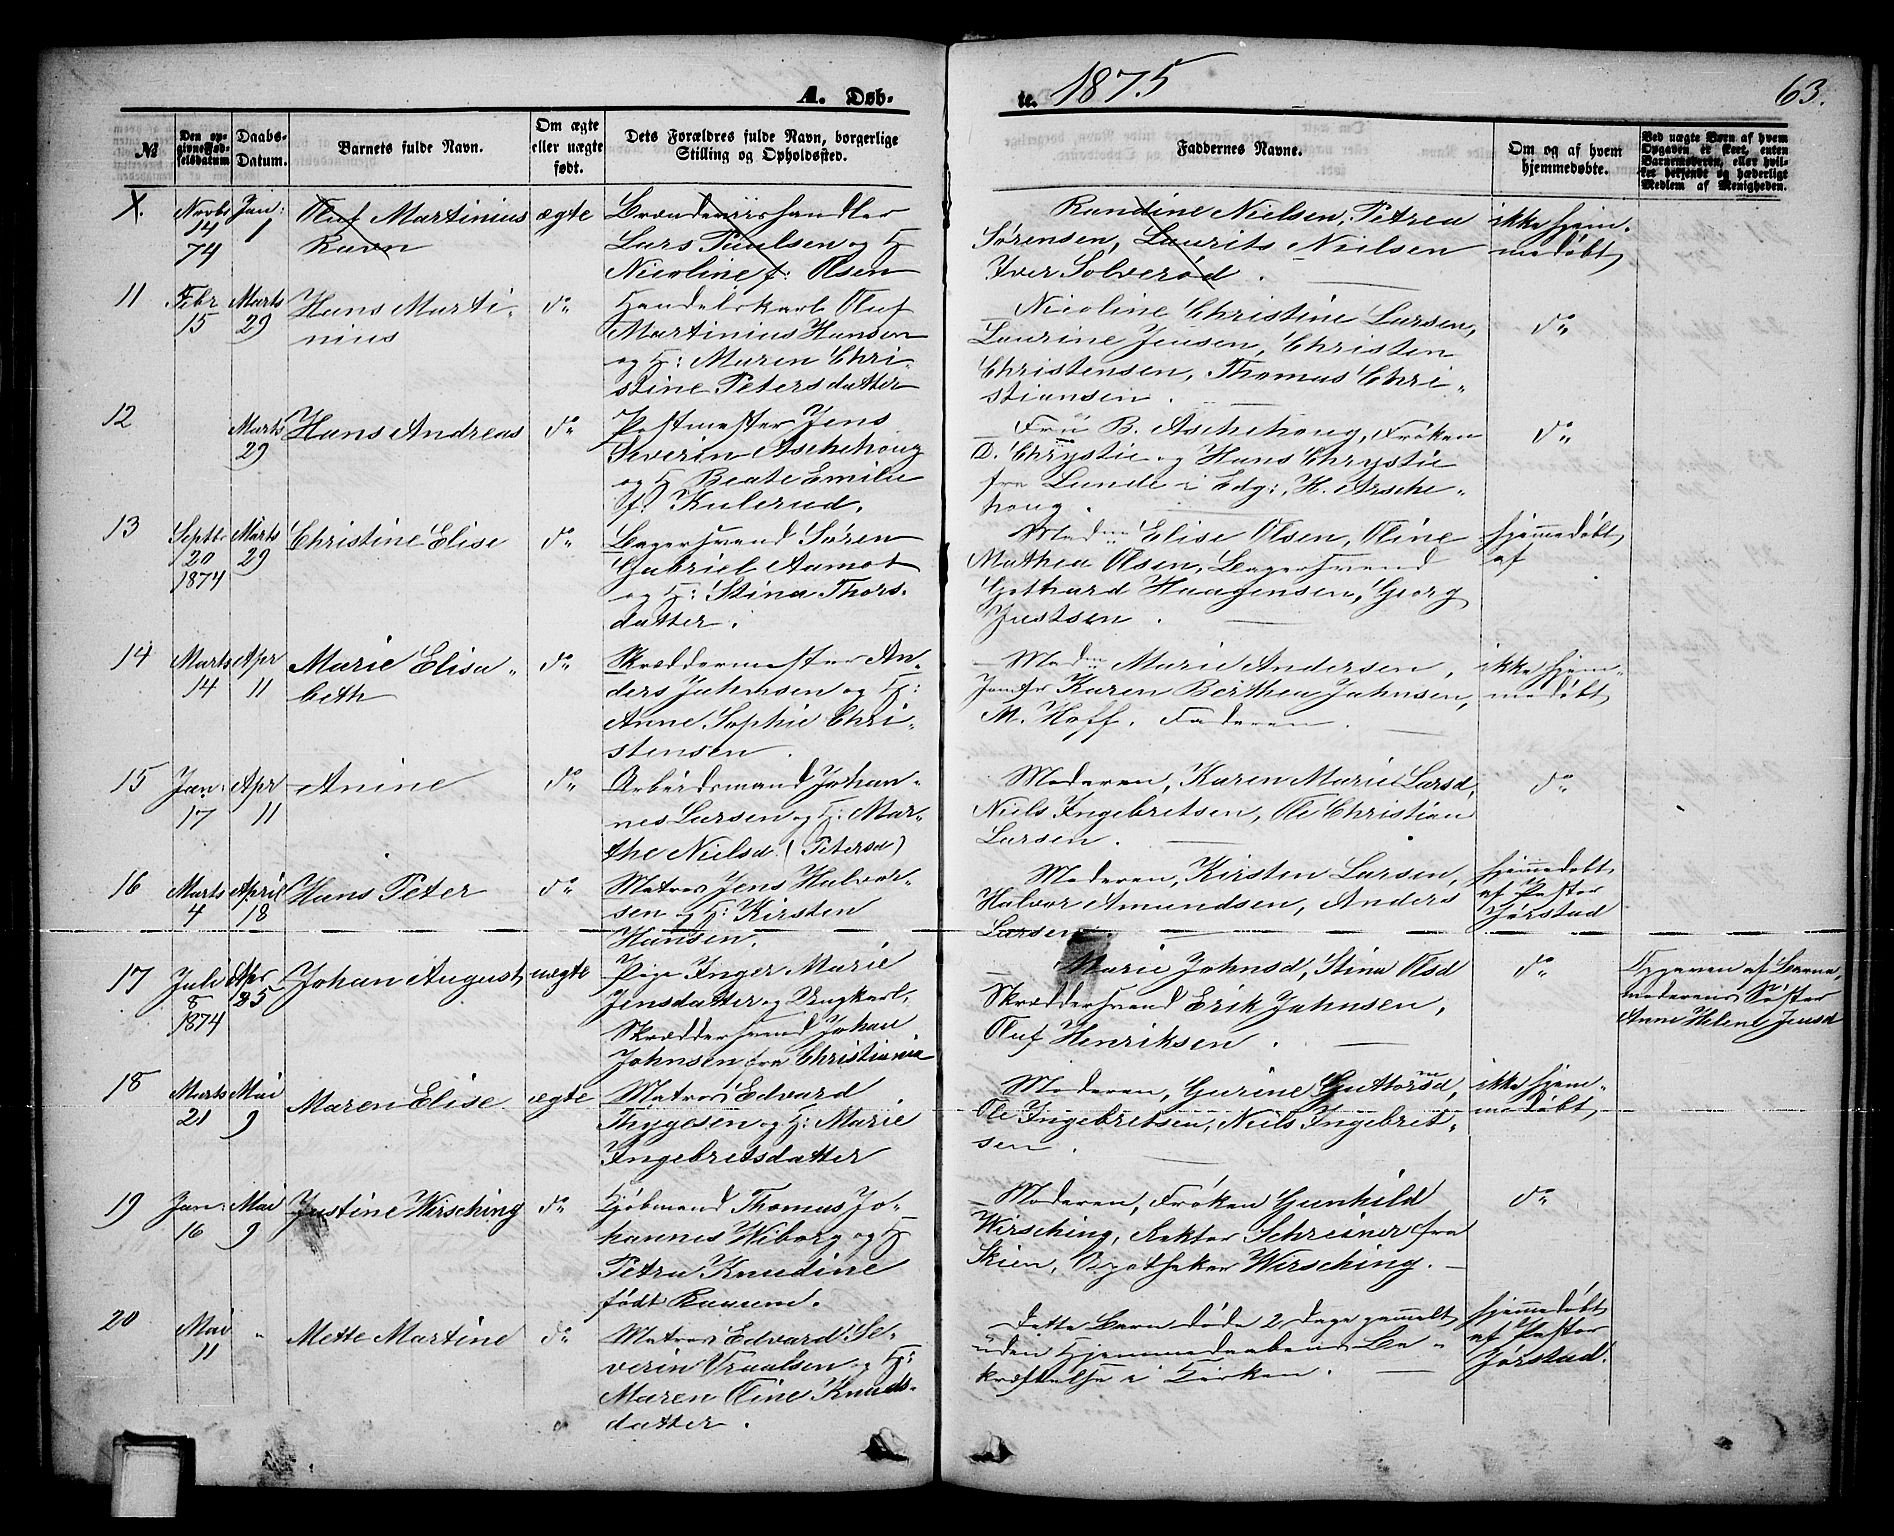 A. Døb-
te. 1875 63.
№
Den opgivne Fødselsdatum
Daabs-Datum.
Barnets fulde Navn.
Om ægte eller uægte født.
Dets Forældres fulde Navn, borgerlige Stilling og Opholdssted.
Faddernes Navne.
Om og af hvem hjemmedøbte.
Ved uægte Børn af hvem Opgaven er skeet, enten Barnemoderen, eller hvilket bekjendt og hæderligt Medlem af Menigheden.
X. Novbr 14 74 Jan: 1 Oluf Martinius Ravn ægte
Brændeviinshandler
Lars Paulsen og H
Nicoline f: Olsen
Randine Nielsen, Petrea
Sørensen, Laurits Nielsen
Iver Solverød.
ikke hjem-
medøbt
11 Febr 15 Marts 29 Hans Marti-
nius
do
Handelskarl Oluf
Martinius Hansen
og H: Maren Chri-
stine Petersdatter
Nicoline Christine Larsen,
Laurine Jensen, Christen
Christensen, Thomas Chri-
stiansen.
do
12 Marts 29 Hans Andreas do
Postmester Jens
Severin Aschehoug
og H Beate Emilie
f. Kulerud.
Fru B. Aschehoug, Frøken
D. Chrystie og Hans Chrystie
fra Lunde i Edg:, H. Asche-
houg.
do
13 Septbr 20 1874 Marts 29 Christine Elise do
Bagersvend Søren
Gabriel Aamot
og H: Stina Thors-
datter.
Mad Elise Olsen, Oline
Mathea Olsen, Bagersvend
Gothard Haagensen, Georg
Justsen.
hjemmedøbt
af
14 Marts 14 Apr 11 Marie Elisa-
beth
do
Skræddermester An-
ders Jahnsen og H:
Anne Sophie Chri-
stensen.
Mad Marie Andersen,
Jomfr Karen Berthea Jahnsen,
M. Hoff. Faderen.
ikke hjem-
medøbt
15 Jan 17 Apr 11 Anine do
Arbeidsmand Johan-
nes Larsen og H: Mar-
the Nielsd (Petersd)
Moderen, Karen Marie Larsd,
Niels Ingebretsen, Ole Christian
Larsen.
do
16 Marts 4 April 18 Hans Peter do
Matros Jens Halvor-
sen og H: Kirsten
Hansen.
Moderen, Kirsten Larsen,
Halvor Amundsen, Anders
Larsen.
hjemmedøbt
af Pastor
Jørstad
17 Juli 8 1874 Apr 25 Johan August uægte
Pige Inger Marie
Jensdatter og Ungkarl,
Skræddersvend Johan
Johnsen fra Christiania
Marie Johnsd, Stina Olsd
Skræddersvend Erik Jahnsen,
Oluf Henriksen.
do
Opgaven af Barne-
moderens Søster
Anne Helene Jensd
18 Marts 21 Mai 9 Maren Elise ægte
Matros Edvard
Thygesen og H: Marie
Ingebretsdatter
Moderen, Gurine Guttormsd,
Ole Ingebretsen, Niels Ingebret-
sen.
ikke hjem-
medøbt
19 Jan: 16 Mai 9 Justine Wirsching do
Kjøbmand Thomas Jo-
hannes Wiborg og H
Petra Knudine
født
Moderen, Frøken Gunhild
Wirsching, Rektor Schreiner fra
Skien, Apotheker Wirsching.
do
20 Mai 11 " Mette Martine do
Matros Edvard Se-
verin Vraalsen og H:
Maren Oline Knuds-
datter.
Dette Barn døde 2 Dage gammelt
uden Hjemmedaabens Be-
kræftelse i Kirken.
hjemmedøbt
af Pastor
Jørstad.